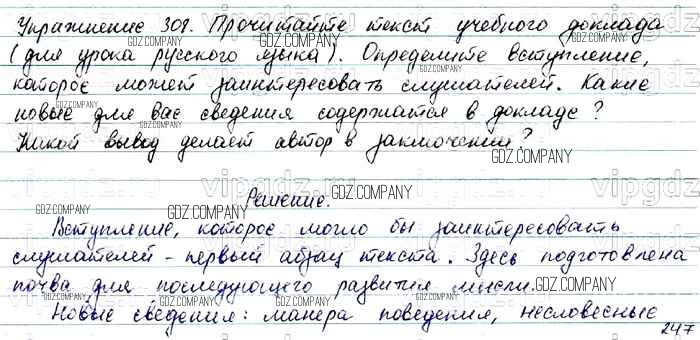 Упражнение 308. Прочитайте текст учебного доклада
(для урока русского языка). Определите вступление,
которое может заинтересовать слушателей. Какие
новые для вас сведения содержатся в докладе?
Какой вывод делает автор в заключении?
Решение.
Вступление, которое могло бы заинтересовать
слушателей - первый абзац текста. Здесь подготовлена
почва для последующего развития мысли.
Новые сведения: манера поведения, несловесные
247
GDZ.COMPANY
vipgdz.ru